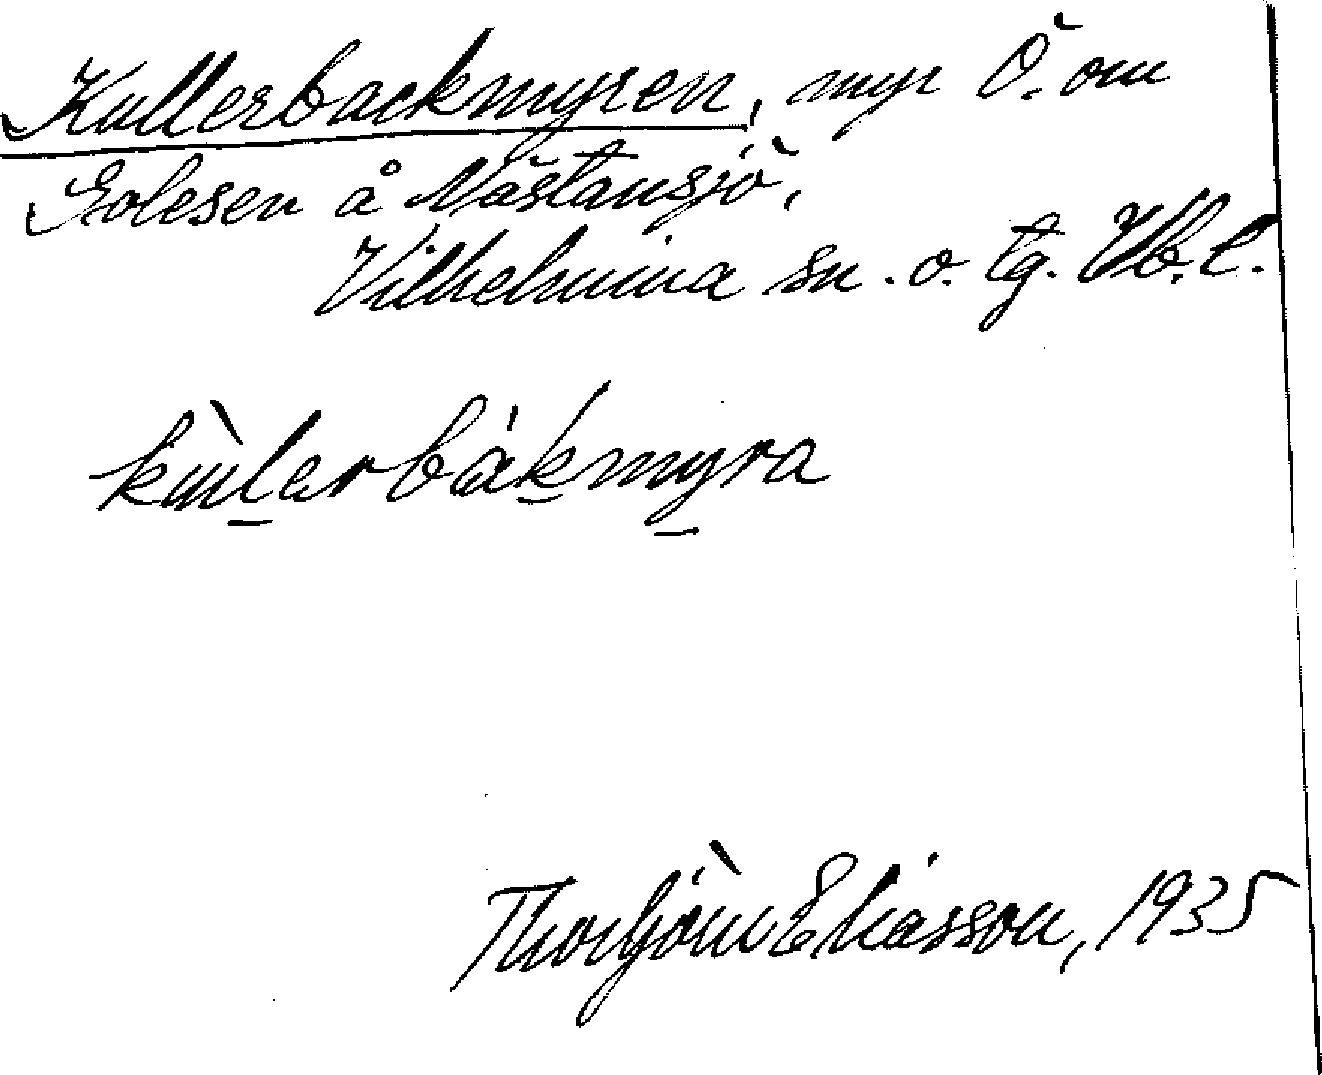 Kullerbackmyren, myr Ö. om
Golesen å Nästansjö,
Vilhelmina sn. o. tg. Vb. l.
kùlerbákmyra
Thorbjörn Eliasson, 1935